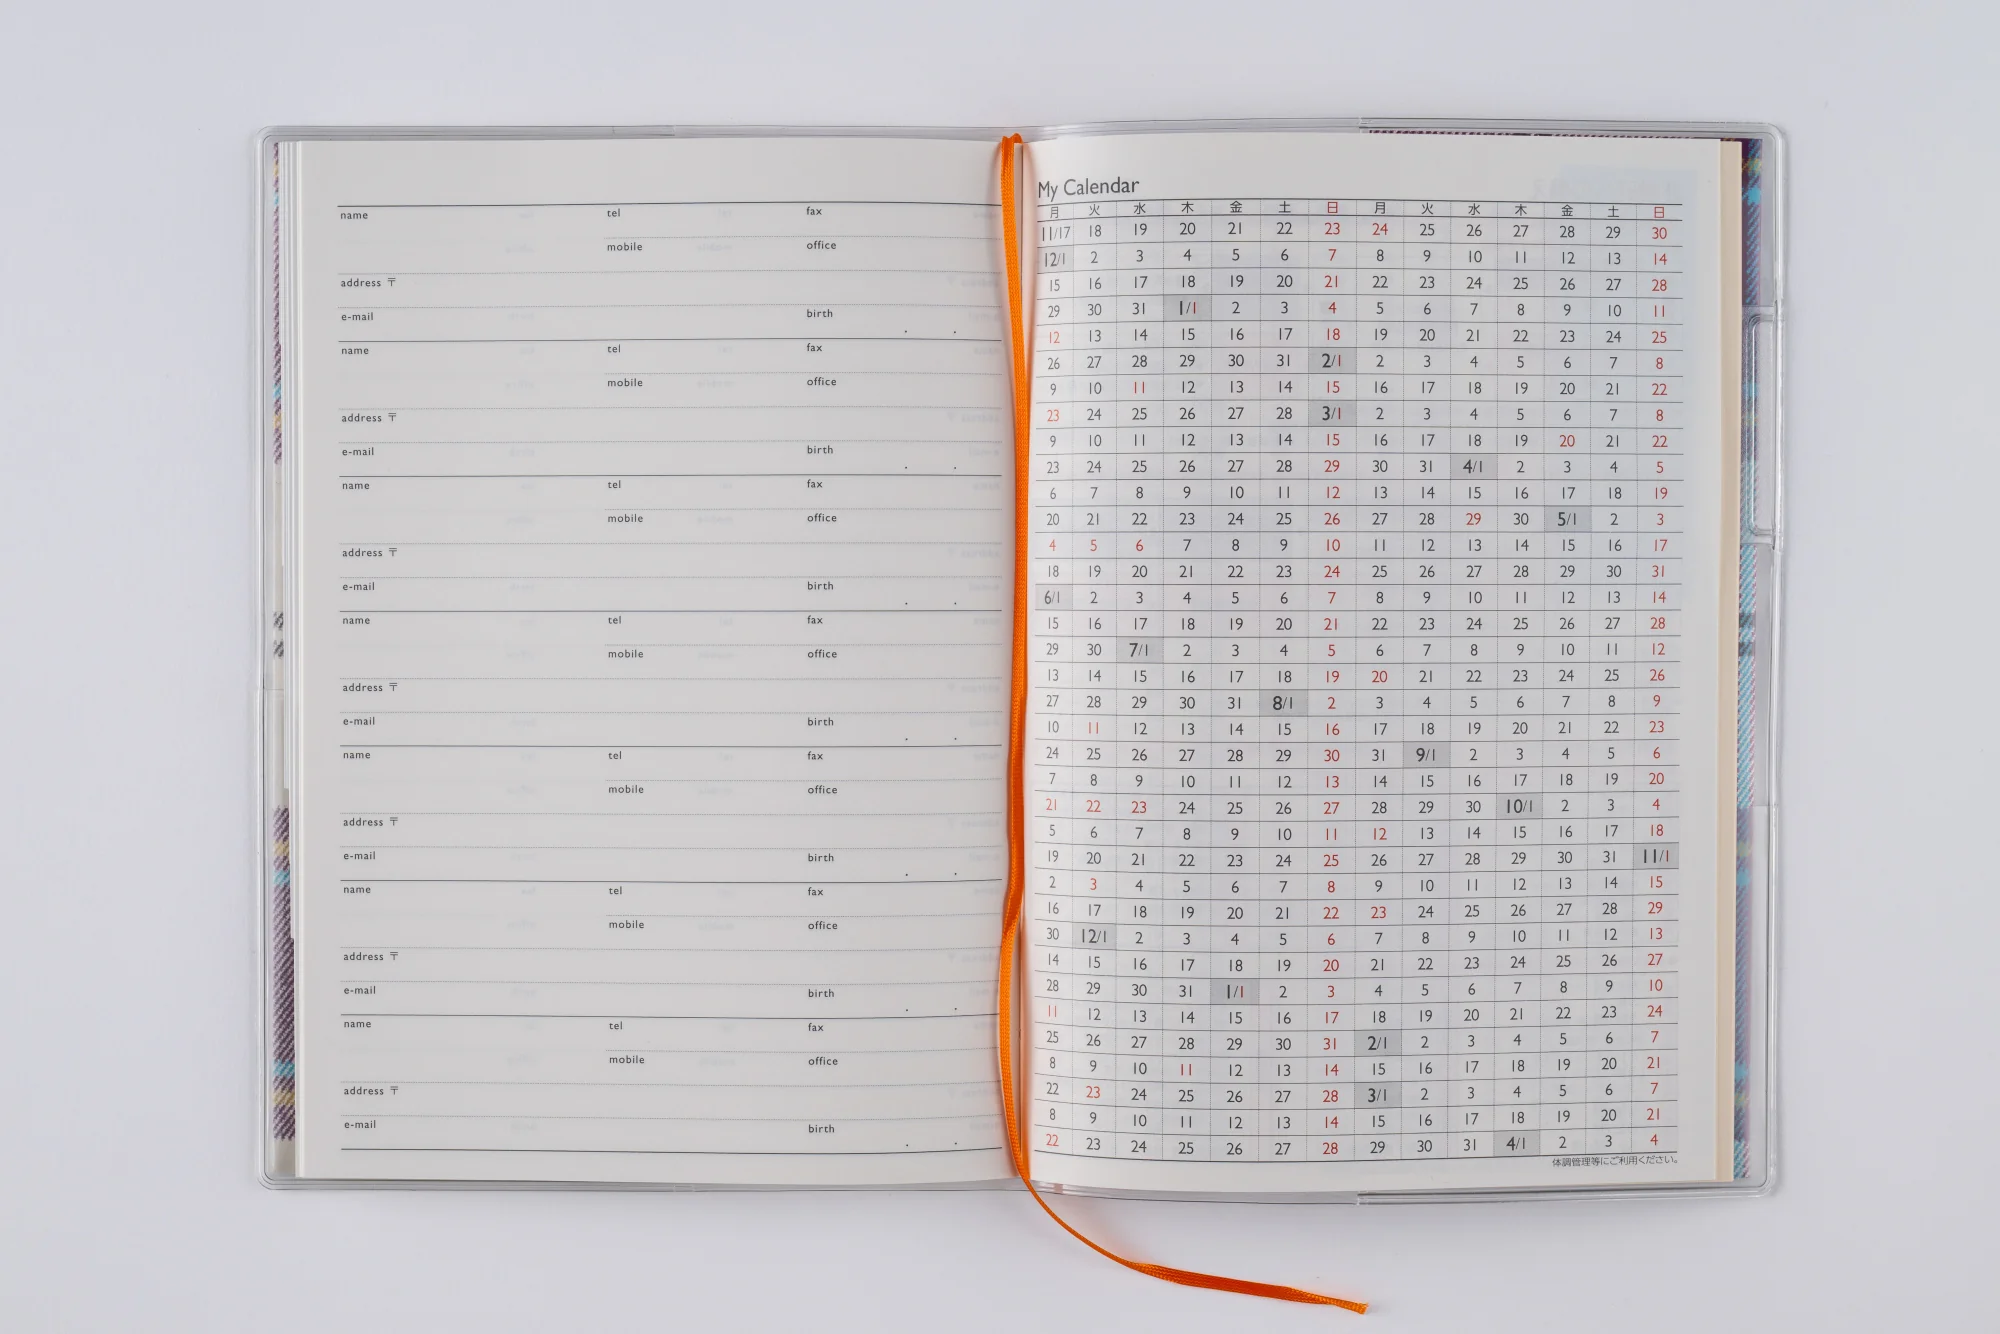 name tel fax
mobile office
address 〒
e-mail birth . .
name tel fax
mobile office
address 〒
e-mail birth . .
name tel fax
mobile office
address 〒
e-mail birth . .
name tel fax
mobile office
address 〒
e-mail birth . .
name tel fax
mobile office
address 〒
e-mail birth . .
name tel fax
mobile office
address 〒
e-mail birth . .
name tel fax
mobile office
address 〒
e-mail birth . .
My Calendar
月 火 水 木 金 土 日 月 火 水 木 金 土 日
11/17 18 19 20 21 22 23 24 25 26 27 28 29 30
12/1 2 3 4 5 6 7 8 9 10 11 12 13 14
15 16 17 18 19 20 21 22 23 24 25 26 27 28
29 30 31 1/1 2 3 4 5 6 7 8 9 10 11
12 13 14 15 16 17 18 19 20 21 22 23 24 25
26 27 28 29 30 31 2/1 2 3 4 5 6 7 8
9 10 11 12 13 14 15 16 17 18 19 20 21 22
23 24 25 26 27 28 3/1 2 3 4 5 6 7 8
9 10 11 12 13 14 15 16 17 18 19 20 21 22
23 24 25 26 27 28 29 30 31 4/1 2 3 4 5
6 7 8 9 10 11 12 13 14 15 16 17 18 19
20 21 22 23 24 25 26 27 28 29 30 5/1 2 3
4 5 6 7 8 9 10 11 12 13 14 15 16 17
18 19 20 21 22 23 24 25 26 27 28 29 30 31
6/1 2 3 4 5 6 7 8 9 10 11 12 13 14
15 16 17 18 19 20 21 22 23 24 25 26 27 28
29 30 7/1 2 3 4 5 6 7 8 9 10 11 12
13 14 15 16 17 18 19 20 21 22 23 24 25 26
27 28 29 30 31 8/1 2 3 4 5 6 7 8 9
10 11 12 13 14 15 16 17 18 19 20 21 22 23
24 25 26 27 28 29 30 31 9/1 2 3 4 5 6
7 8 9 10 11 12 13 14 15 16 17 18 19 20
21 22 23 24 25 26 27 28 29 30 10/1 2 3 4
5 6 7 8 9 10 11 12 13 14 15 16 17 18
19 20 21 22 23 24 25 26 27 28 29 30 31 11/1
2 3 4 5 6 7 8 9 10 11 12 13 14 15
16 17 18 19 20 21 22 23 24 25 26 27 28 29
30 12/1 2 3 4 5 6 7 8 9 10 11 12 13
14 15 16 17 18 19 20 21 22 23 24 25 26 27
28 29 30 31 1/1 2 3 4 5 6 7 8 9 10
11 12 13 14 15 16 17 18 19 20 21 22 23 24
25 26 27 28 29 30 31 2/1 2 3 4 5 6 7
8 9 10 11 12 13 14 15 16 17 18 19 20 21
22 23 24 25 26 27 28 3/1 2 3 4 5 6 7
8 9 10 11 12 13 14 15 16 17 18 19 20 21
22 23 24 25 26 27 28 29 30 31 4/1 2 3 4
体調管理等にご利用ください。